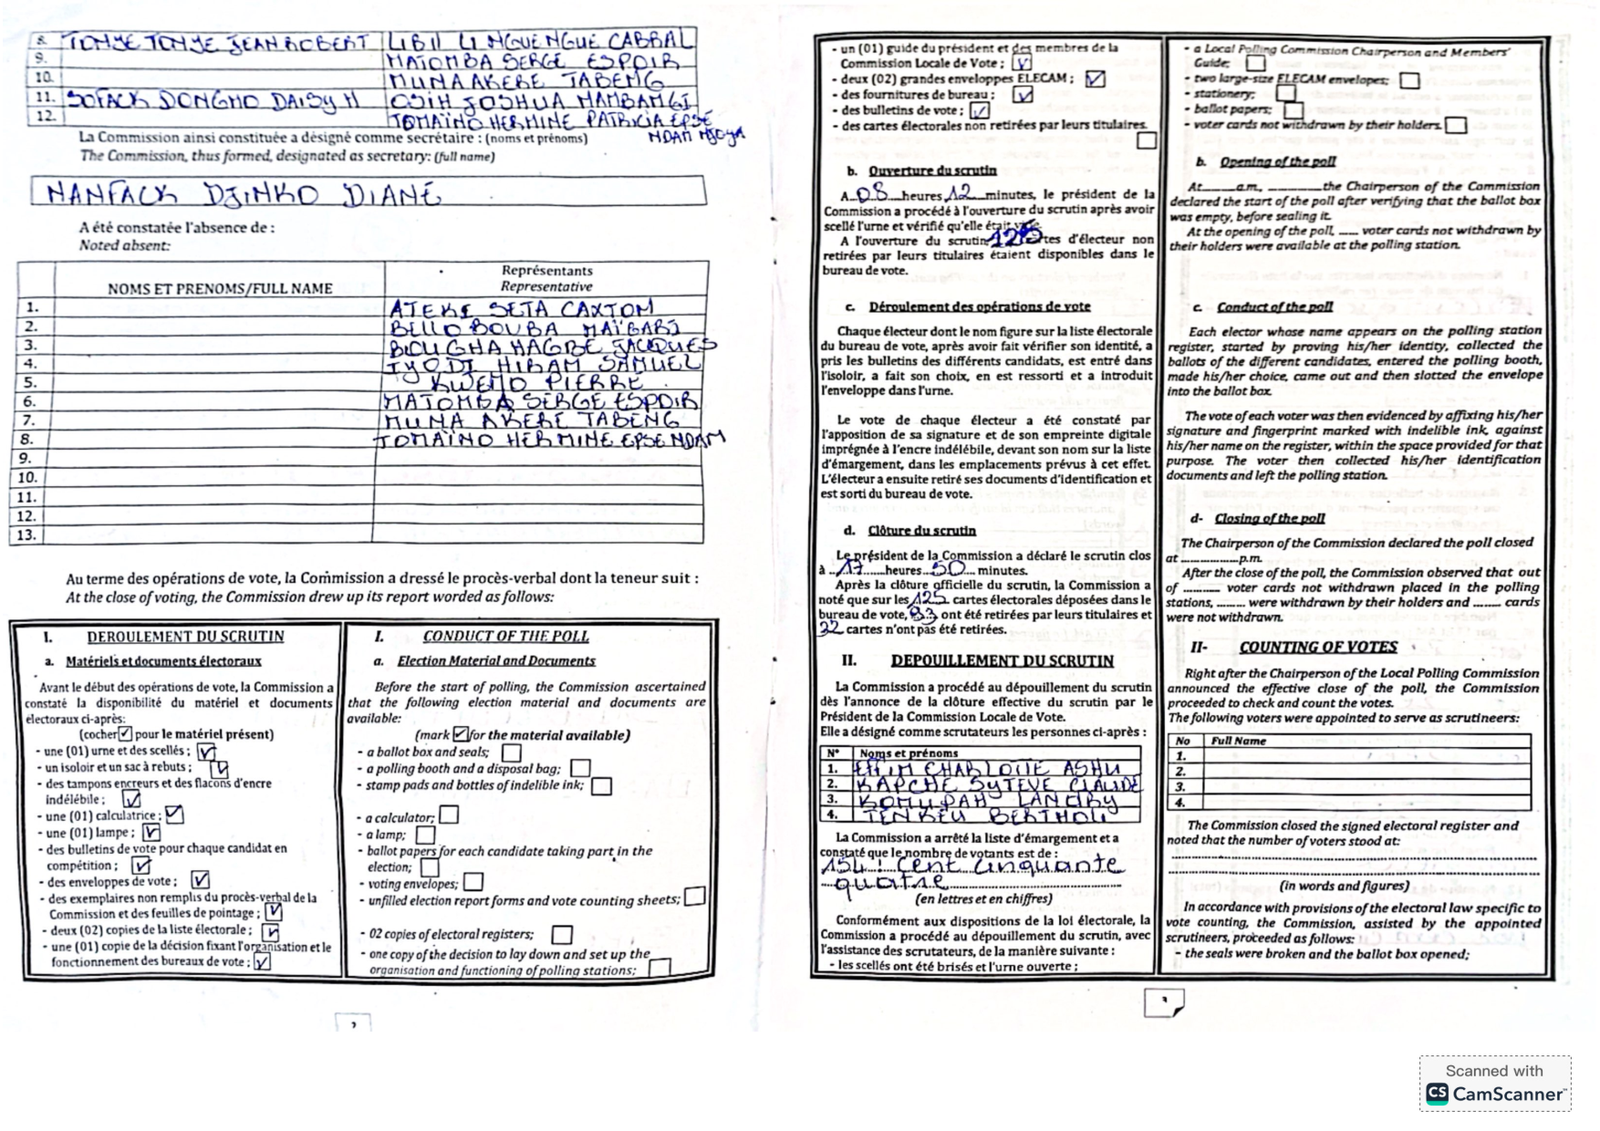 8. TONYE TONYE JEAN ROBERT LIBII LI NGUE NGUE CABRAL
9. MATOMBA SERGE ESPOIR
10. MUNA AKERE TABENG
11. SOFACK DONGMO DAISY M OSIH JOSHUA NAMBANGI
12. TOMAINO HERMINE PATRICIA EPSE
NDAM NJOYA
La Commission ainsi constituée a désigné comme secrétaire : (noms et prénoms)
The Commission, thus formed, designated as secretary: (full name)
NANFACK DJINKO DIANE
A été constatée l'absence de :
Noted absent:
NOMS ET PRENOMS/FULL NAME
Représentants
Representative
1. ATEKE SETA CAXTON
2. BELLO BOUBA MAÏGARI
3. BOUGHA HAGBE JACQUES
4. IYODI HIRAM SAMUEL
5. KWEMO PIERRE
6. MATOMBA SERGE ESPOIR
7. MUNA AKERE TABENG
8. TOMAINO HERMINE EPSE NDAM
9.
10.
11.
12.
13.
Au terme des opérations de vote, la Commission a dressé le procès-verbal dont la teneur suit :
At the close of voting, the Commission drew up its report worded as follows:
I. DEROULEMENT DU SCRUTIN
a. Matériels et documents électoraux
Avant le début des opérations de vote, la Commission a
constaté la disponibilité du matériel et documents
électoraux ci-après:
(cocher ☑ pour le matériel présent)
- une (01) urne et des scellés ; ☑
- un isoloir et un sac à rebuts ; ☑
- des tampons encreurs et des flacons d'encre
indélébile ; ☑
- une (01) calculatrice ; ☑
- une (01) lampe ; ☑
- des bulletins de vote pour chaque candidat en
compétition ; ☑
- des enveloppes de vote ; ☑
- des exemplaires non remplis du procès-verbal de la
Commission et des feuilles de pointage ; ☑
- deux (02) copies de la liste électorale ; ☑
- une (01) copie de la décision fixant l'organisation et le
fonctionnement des bureaux de vote ; ☑
I. CONDUCT OF THE POLL
a. Election Material and Documents
Before the start of polling, the Commission ascertained
that the following election material and documents are
available:
(mark ☑ for the material available)
- a ballot box and seals; ☐
- a polling booth and a disposal bag; ☐
- stamp pads and bottles of indelible ink; ☐
- a calculator; ☐
- a lamp; ☐
- ballot papers for each candidate taking part in the
election; ☐
- voting envelopes; ☐
- unfilled election report forms and vote counting sheets; ☐
- 02 copies of electoral registers; ☐
- one copy of the decision to lay down and set up the
organisation and functioning of polling stations; ☐
2
- un (01) guide du président et des membres de la
Commission Locale de Vote ; ☑
- deux (02) grandes enveloppes ELECAM ; ☑
- des fournitures de bureau ; ☑
- des bulletins de vote ; ☑
- des cartes électorales non retirées par leurs titulaires. ☐
b. Ouverture du scrutin
A 08 heures 12 minutes, le président de la
Commission a procédé à l'ouverture du scrutin après avoir
scellé l'urne et vérifié qu'elle était vide.
A l'ouverture du scrutin 125 cartes d'électeur non
retirées par leurs titulaires étaient disponibles dans le
bureau de vote.
c. Déroulement des opérations de vote
Chaque électeur dont le nom figure sur la liste électorale
du bureau de vote, après avoir fait vérifier son identité, a
pris les bulletins des différents candidats, est entré dans
l'isoloir, a fait son choix, en est ressorti et a introduit
l'enveloppe dans l'urne.
Le vote de chaque électeur a été constaté par
l'apposition de sa signature et de son empreinte digitale
imprégnée à l'encre indélébile, devant son nom sur la liste
d'émargement, dans les emplacements prévus à cet effet.
L'électeur a ensuite retiré ses documents d'identification et
est sorti du bureau de vote.
d. Clôture du scrutin
Le président de la Commission a déclaré le scrutin clos
à 17 heures 50 minutes.
Après la clôture officielle du scrutin, la Commission a
noté que sur les 125 cartes électorales déposées dans le
bureau de vote, 93 ont été retirées par leurs titulaires et
32 cartes n'ont pas été retirées.
II. DEPOUILLEMENT DU SCRUTIN
La Commission a procédé au dépouillement du scrutin
dès l'annonce de la clôture effective du scrutin par le
Président de la Commission Locale de Vote.
Elle a désigné comme scrutateurs les personnes ci-après :
N° Noms et prénoms
1. CHARLOTTE ASHU
2. KAPCHE SYTEVE CLAUDE
3. LANDRY
4. TENKEU
La Commission a arrêté la liste d'émargement et a
constaté que le nombre de votants est de :
154 : Cent cinquante
quatre
(en lettres et en chiffres)
Conformément aux dispositions de la loi électorale, la
Commission a procédé au dépouillement du scrutin, avec
l'assistance des scrutateurs, de la manière suivante :
- les scellés ont été brisés et l'urne ouverte ;
- a Local Polling Commission Chairperson and Members'
Guide; ☐
- two large-size ELECAM envelopes; ☐
- stationery; ☐
- ballot papers; ☐
- voter cards not withdrawn by their holders. ☐
b. Opening of the poll
At......a.m, ............the Chairperson of the Commission
declared the start of the poll after verifying that the ballot box
was empty, before sealing it.
At the opening of the poll, ...... voter cards not withdrawn by
their holders were available at the polling station.
c. Conduct of the poll
Each elector whose name appears on the polling station
register, started by proving his/her identity, collected the
ballots of the different candidates, entered the polling booth,
made his/her choice, came out and then slotted the envelope
into the ballot box.
The vote of each voter was then evidenced by affixing his/her
signature and fingerprint marked with indelible ink, against
his/her name on the register, within the space provided for that
purpose. The voter then collected his/her identification
documents and left the polling station.
d- Closing of the poll
The Chairperson of the Commission declared the poll closed
at ..................p.m.
After the close of the poll, the Commission observed that out
of .......... voter cards not withdrawn placed in the polling
stations, ........ were withdrawn by their holders and ........ cards
were not withdrawn.
II- COUNTING OF VOTES
Right after the Chairperson of the Local Polling Commission
announced the effective close of the poll, the Commission
proceeded to check and count the votes.
The following voters were appointed to serve as scrutineers:
No Full Name
1.
2.
3.
4.
The Commission closed the signed electoral register and
noted that the number of voters stood at:
(in words and figures)
In accordance with provisions of the electoral law specific to
vote counting, the Commission, assisted by the appointed
scrutineers, proceeded as follows:
- the seals were broken and the ballot box opened;
3
Scanned with
CS CamScanner